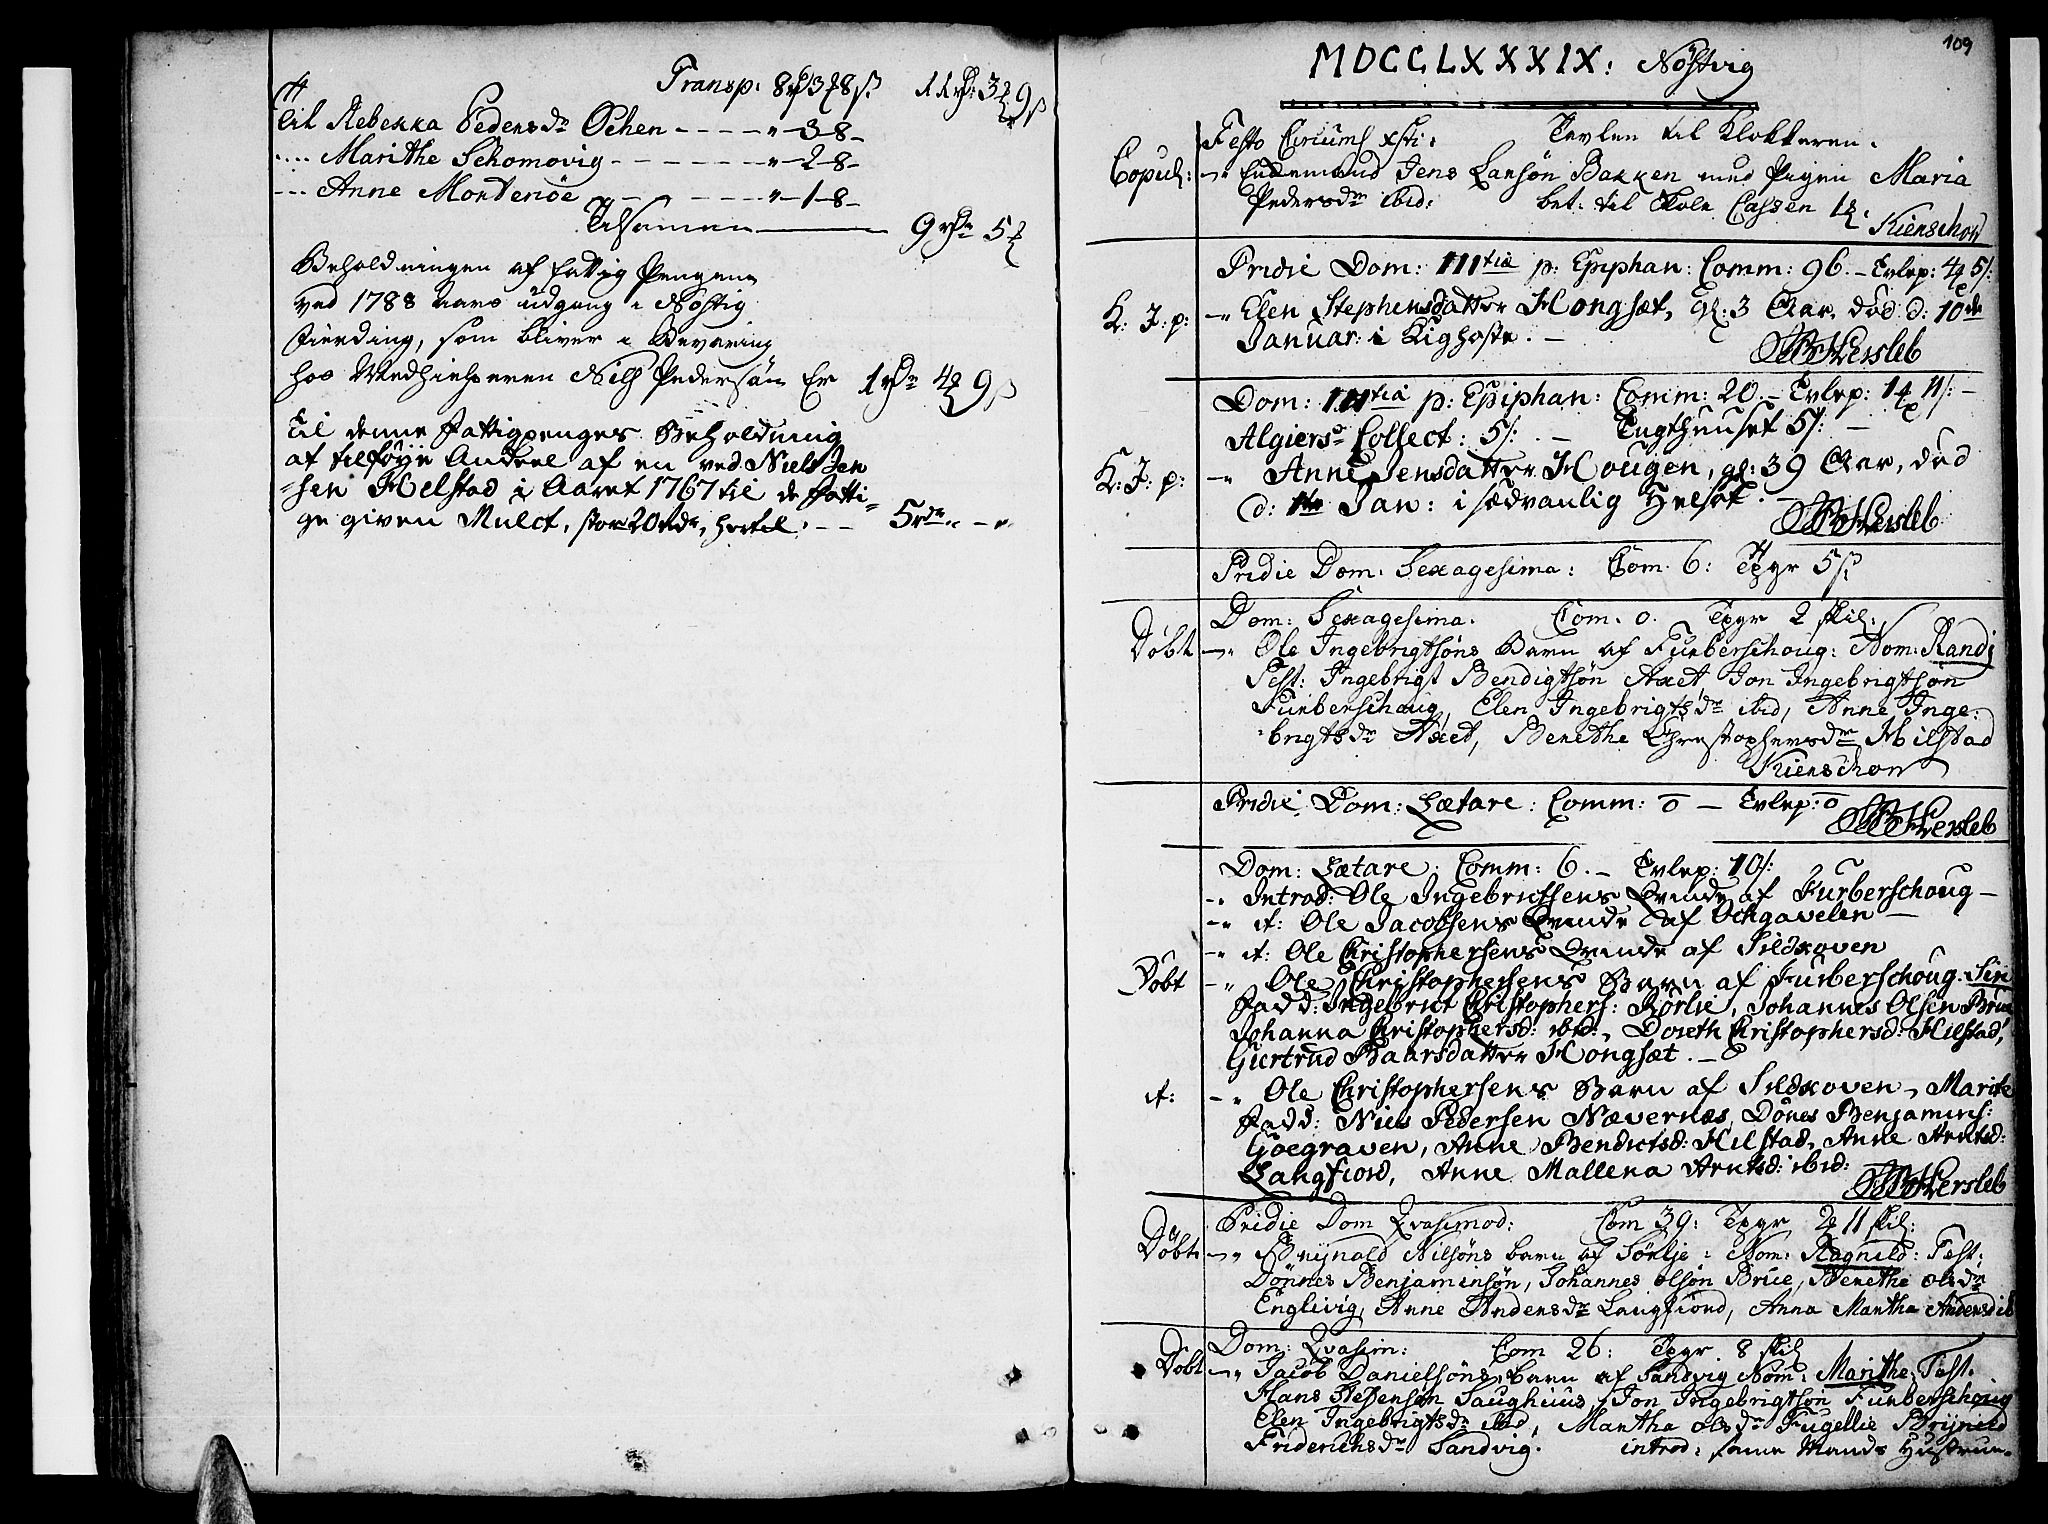 Transp: 8 3 8 s. 11 3 9 s
Til Rebekka Pedersdr Ochen - - - - " - 3 - 8 -
.... Marithe Schomovig - - - - - - - " - 2 - 8 -
... Anne Mortenöe - - - - - - " - 1 - 8 -
Tilsamen 9 rdr 5
Beholdningen af fattig Pengene
ved 1788 Aars udgang i Nöstig
Fierding, som bliver i Bevaring
hos Medhielperen Nils Pedersön Er 1 rdr 4 9 s
Til denne Fattigpenges Beholdning
at tilföye Andeel af en ved Niels Jen
sen Helstad i Aaret 1767 til de Fatti=
ge given Mulct, stor 20 rdr, hertil: - - 5 rdr " - "
109
MDCCLXXXIX: Nöstvig
Festo Circumc xsti: Tavlen til Klokkeren.
Copul: -" Enkemand Jens Larsön Bakken med Pigen Maria
Pedersdr ibid: bet: til Skole Cassen 1
Kienschow
Pridie Dom: IIItia p: Epiphan: Comm: 96. - Evlep: 4 5/:
K: J: p: -" Elen Stephensdatter Hongsæt, gl: 3 Aar, död d: 10de
Januar: i Kighoste. -
Hersleb
Dom: IIItia p: Epiphan: Comm: 20. - Evlep: 1 11/: -
Algiers Collect: 5/: - Tugthuuset 5/: -
K: J: p: -" Anne Jensdatter Hougen, gl: 39 Aar, död
d: 1te Jan: i sædvanlig Helsot. -
Hersleb
Pridie Dom: Sexagesima: Com. 6: Tpgr 5 s.
Dom: Sexagesima. Com. 0. Tpgr 2 skil:
Döbt -" Ole Ingebrigtsöns Barn af Furberschoug: Nom: Randi
Test: Ingebrigt Bendigtsön Axet Jon Ingebrigtsön
Furberschoug, Elen Ingebrigtsdr ibid, Anne Inge:
brigtsdr Axet, Berethe Christophersdr Hilstad
Kienschow
Pridie Dom: Lætare: Comm: 0 - Evlep: 0
Hersleb
Dom: Lætare: Comm: 6. - Evlep: 10/:
-" Introd: Ole Ingebrictsens Qvinde af Furberschoug -
-" it: Ole Jacobsens Qvinde af Ochgavelen -
-" it: Ole Christophersens Qvinde af Sildxoven
Döbt -" Ole Christophersens Barn af Furberschoug: Siri
Fadd: Ingebrict Christophers: Rörlie, Johannes Olsen Brue
Johanna Christophersd: ibid:, Doreth Christophersd: Hilstad,
Giertrud Baarsdatter Hongsæt. -
it: -" Ole Christophersens Barn af Sildxoven, Marite
Fadd: Niels Pedersen Nævernæs, Dönes Benjamins:
Goegraven, Anne Bendictsd: Hilstad, Anne Arntsd:
Langfiord, Anne Mallena Arntsd: ibid:
Hersleb
Pridie Dom Qvasimod: Com 39: Tpgr 2 11 skil:
Döbt -" Brynald Nilsöns barn af Sörlje: Nom: Ragnild: Test:
Dönnes Benjaminsön, Johannes Olsön Brue, Berethe Olsdr
Englivig, Anne Andersdr Langfiord, Anna Martha Andersd ib
Dom: Qvasim: Com 26: Tpgr 8 skil
Döbt -" Jacob Danielsöns barn af Sandvig Nom: Marithe: Test:
Hans Jepsensen Saughuus, Jon Ingebrigtsön Furberschoug
Elen Ingebrigtsdr ibid, Martha Olsdr Fugellie Brynild
Friderichsdr Sandvig. introd: samme Mands Hustrue.